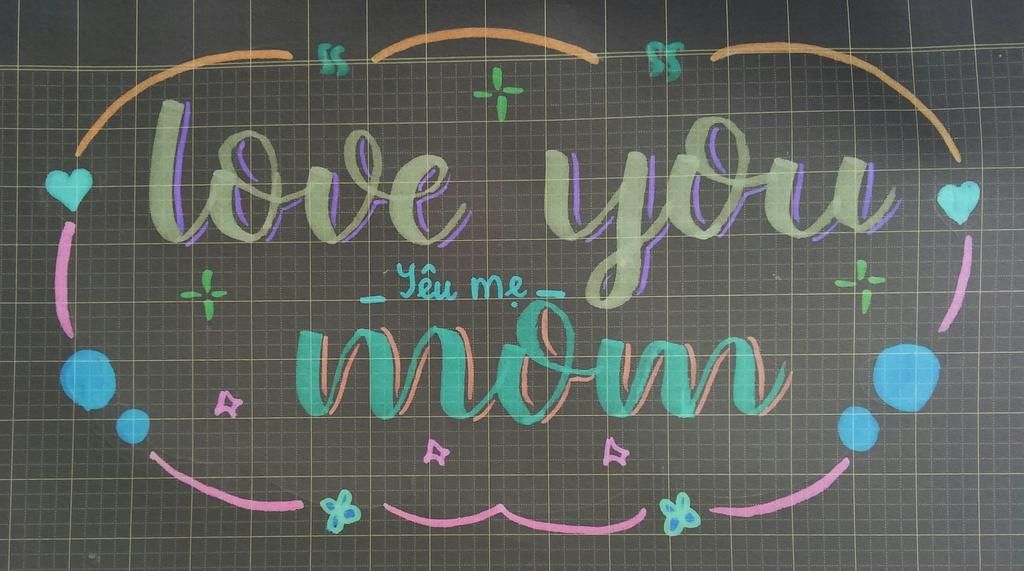 love you
_ Yêu mẹ _
mom